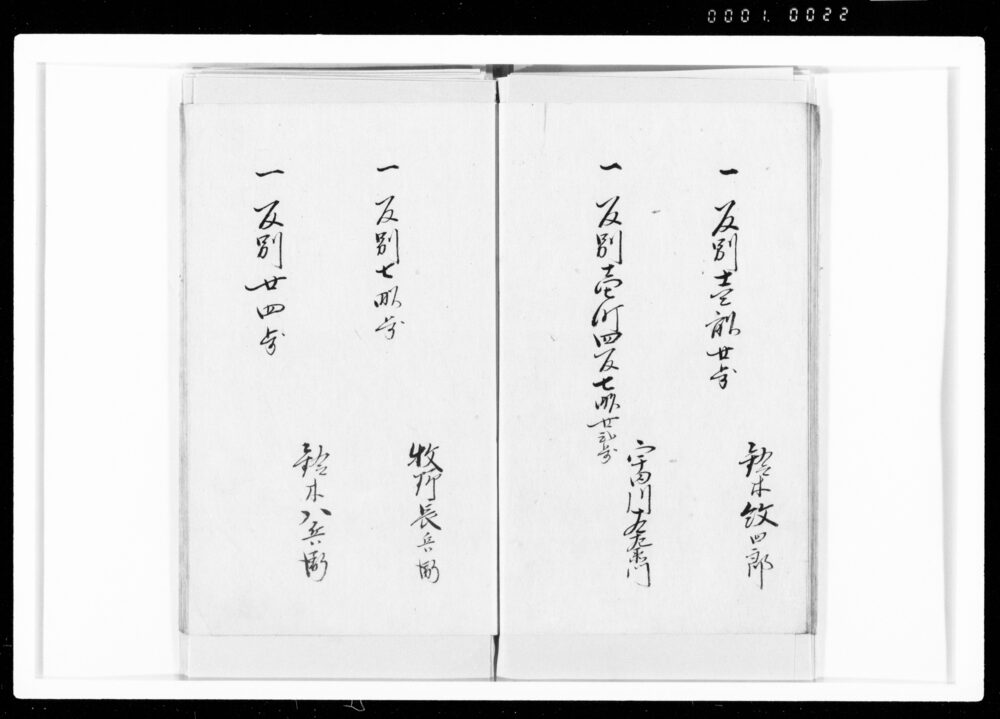 0001. 0022
一 反別壱畝廿歩
鈴木紋四郎
一 反別壱町四反七畝廿弐歩
富田川左衛門
一 反別七畝歩
牧野長兵衛
一 反別廿四歩
鈴木八兵衛